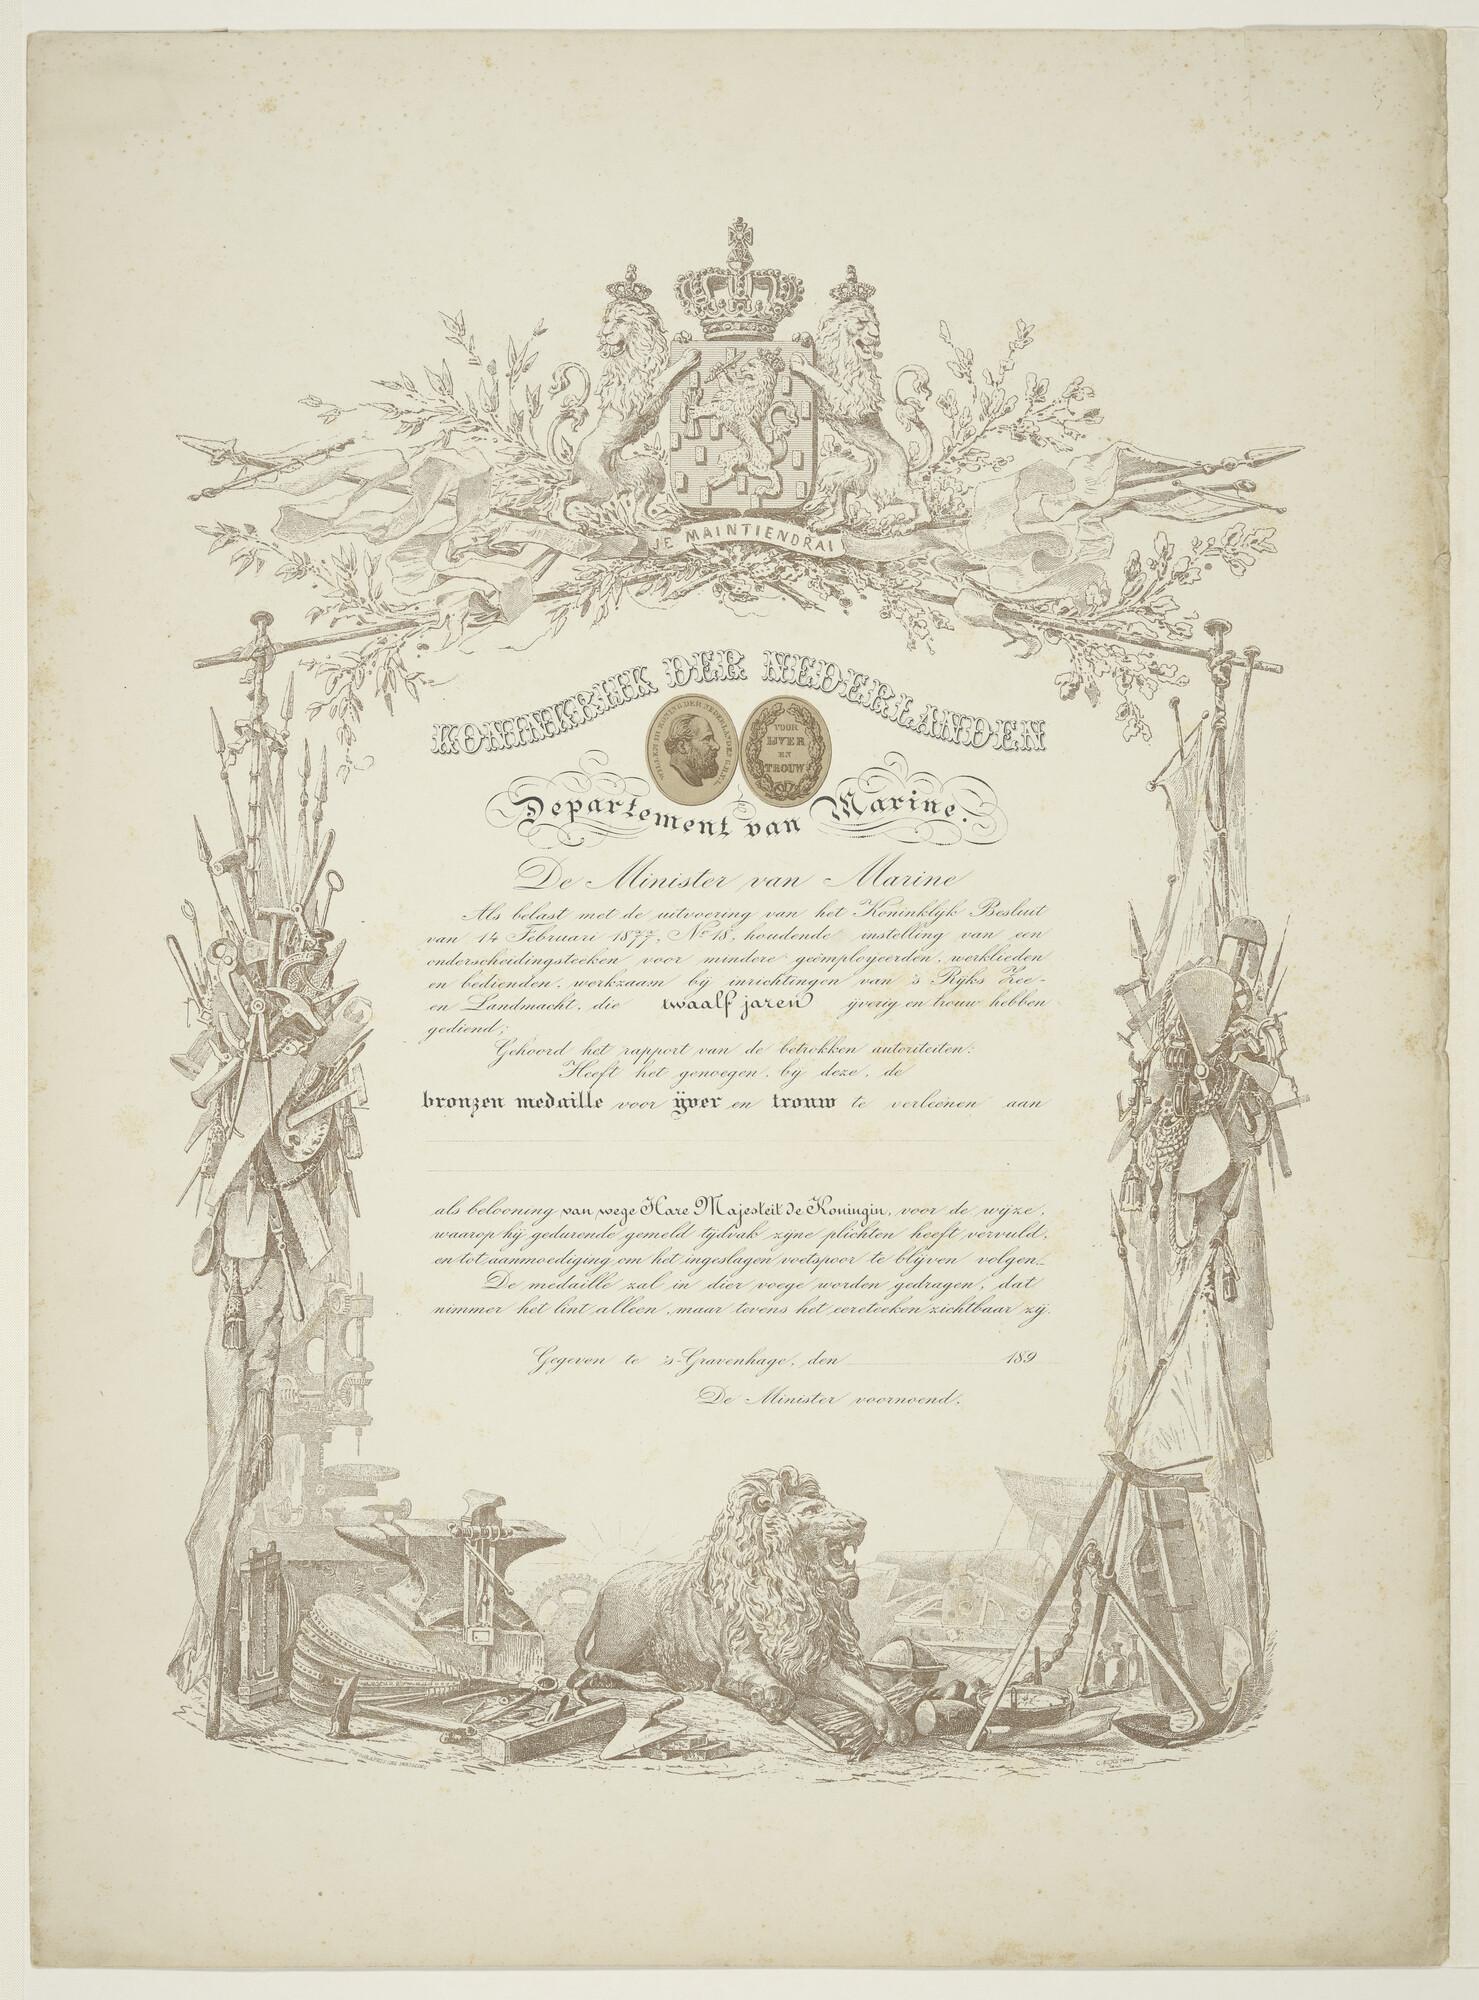 JE MAINTIENDRAI
KONINKRIJK DER NEDERLANDEN
WILLEM III KONING DER NEDERLANDEN G.H.V.L.
VOOR
IJVER
EN
TROUW
Departement van Marine.
De Minister van Marine
Als belast met de uitvoering van het Koninklijk Besluit
van 14 Februari 1877, No 18, houdende instelling van een
onderscheidingsteeken voor mindere geëmployeerden, werklieden
en bedienden, werkzaam bij inrichtingen van 's Rijks Zee-
en Landmacht, die twaalf jaren ijverig en trouw hebben
gediend;
Gehoord het rapport van de betrokken autoriteiten:
Heeft het genoegen, bij deze, de
bronzen medaille voor ijver en trouw te verleenen aan
als belooning van wege Hare Majesteit de Koningin, voor de wijze,
waarop hij gedurende gemeld tijdvak zijne plichten heeft vervuld,
en tot aanmoediging om het ingeslagen voetspoor te blijven volgen.
De medaille zal in dier voege worden gedragen, dat
nimmer het lint alleen, maar tevens het eereteeken zichtbaar zij.
Gegeven te 's-Gravenhage, den 189
De Minister voornoemd,